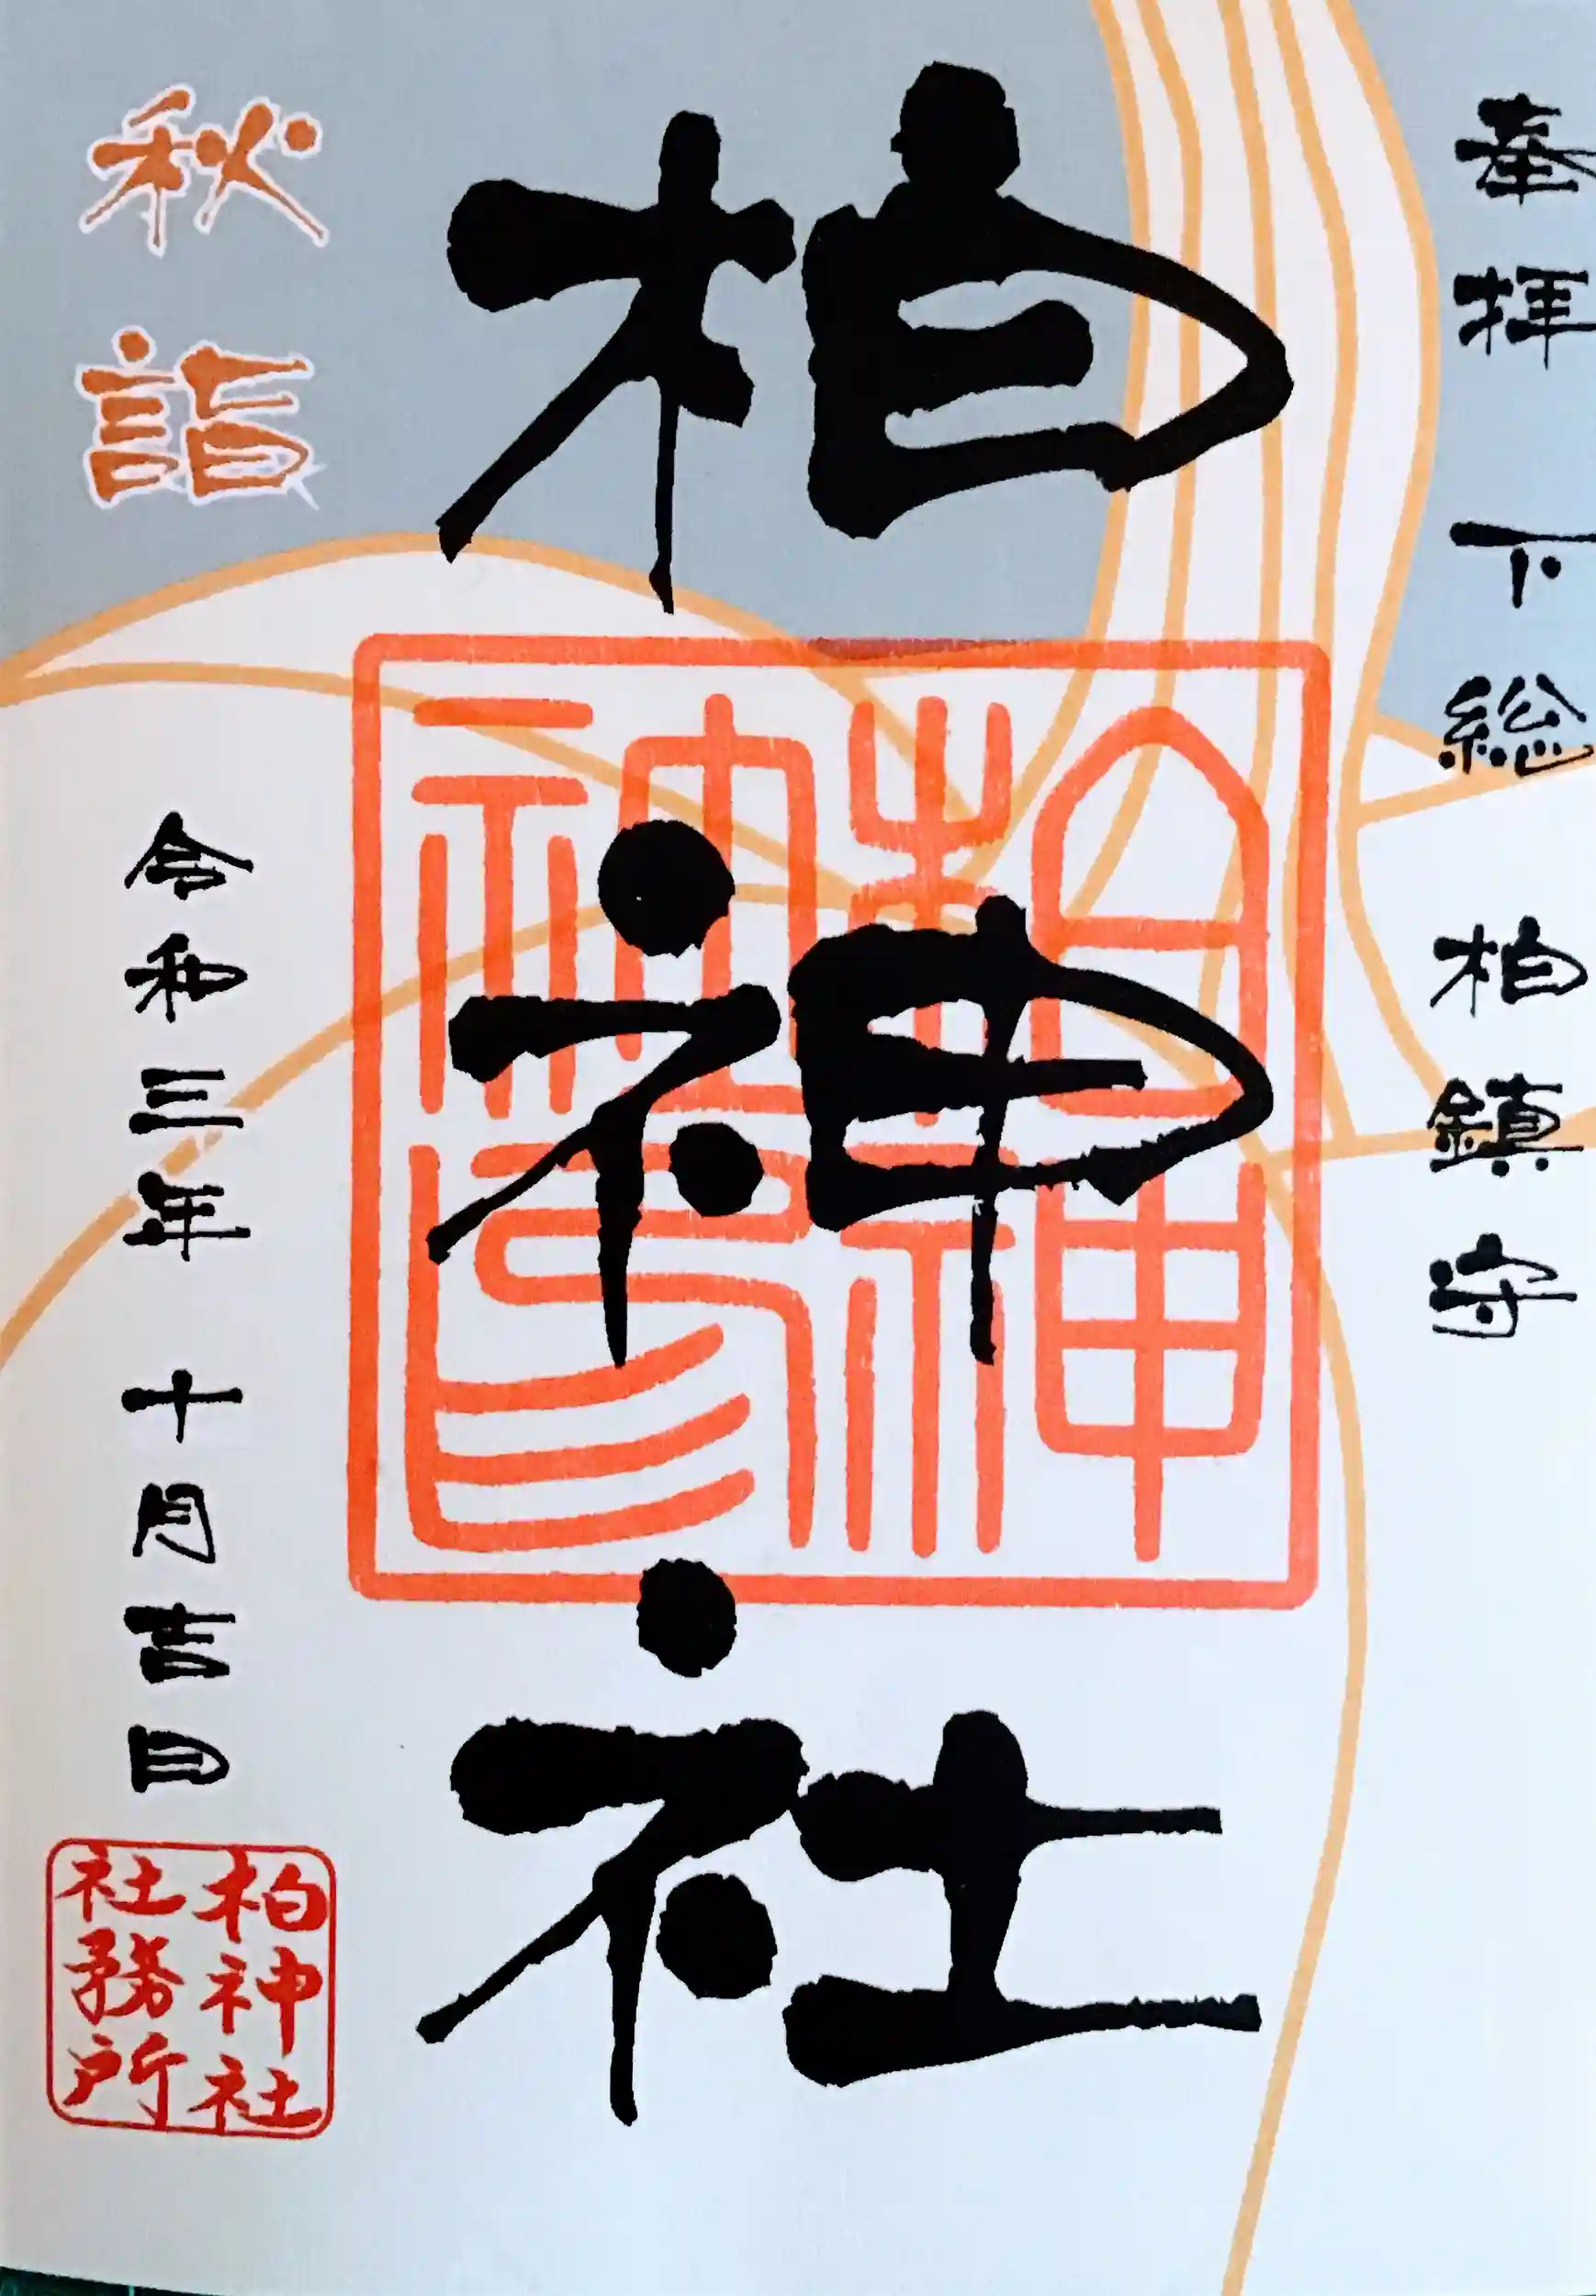 奉拝 下総 柏鎮守
柏神社
柏神
社神印
秋詣
令和三年 十月吉日
柏神社
社務所